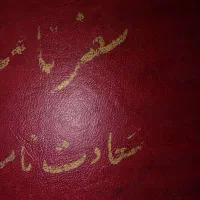 سفرنام
سعادت نام